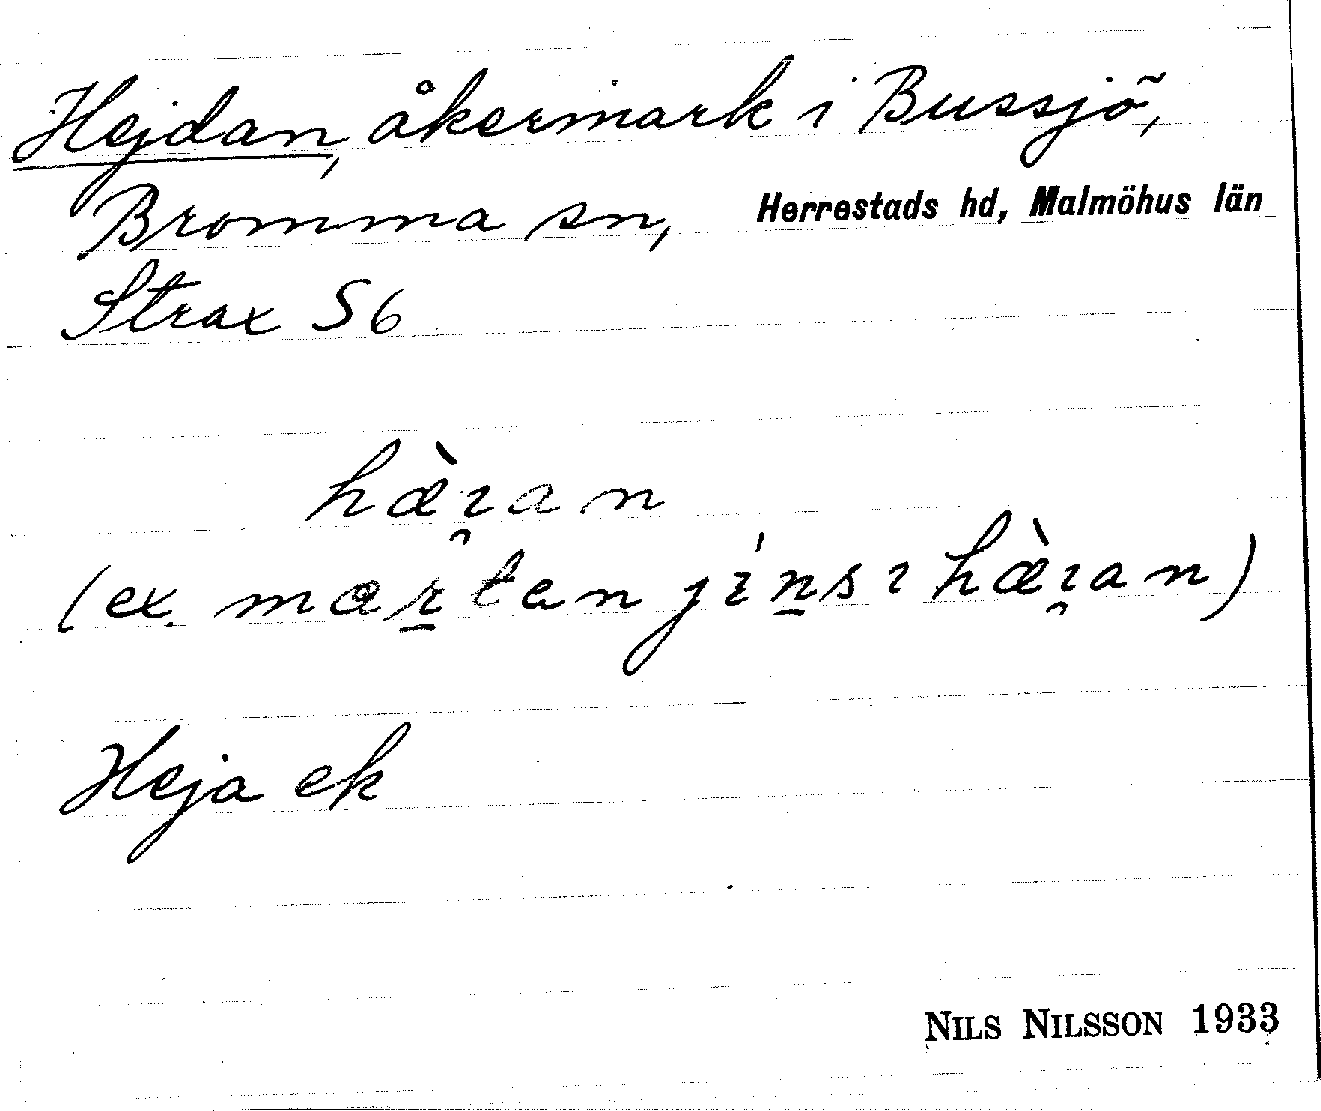 Hejdan, åkermark i Bussjö,
Bromma sn, Herrestads hd, Malmöhus län
Strax S 6
hæ̀ı̯an
(ex. mæṟtan jíṉs ı hæ̀ı̯an)
Heja ek
NILS NILSSON 1933